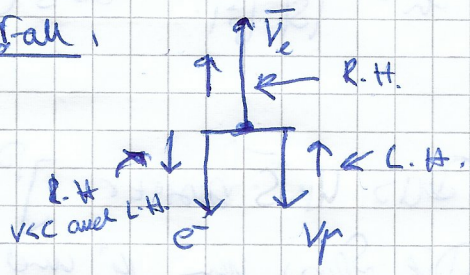 Fall 1
V̄e
R.H.
R.H
L.H.
V<C auch L.H.
e⁻
Vμ